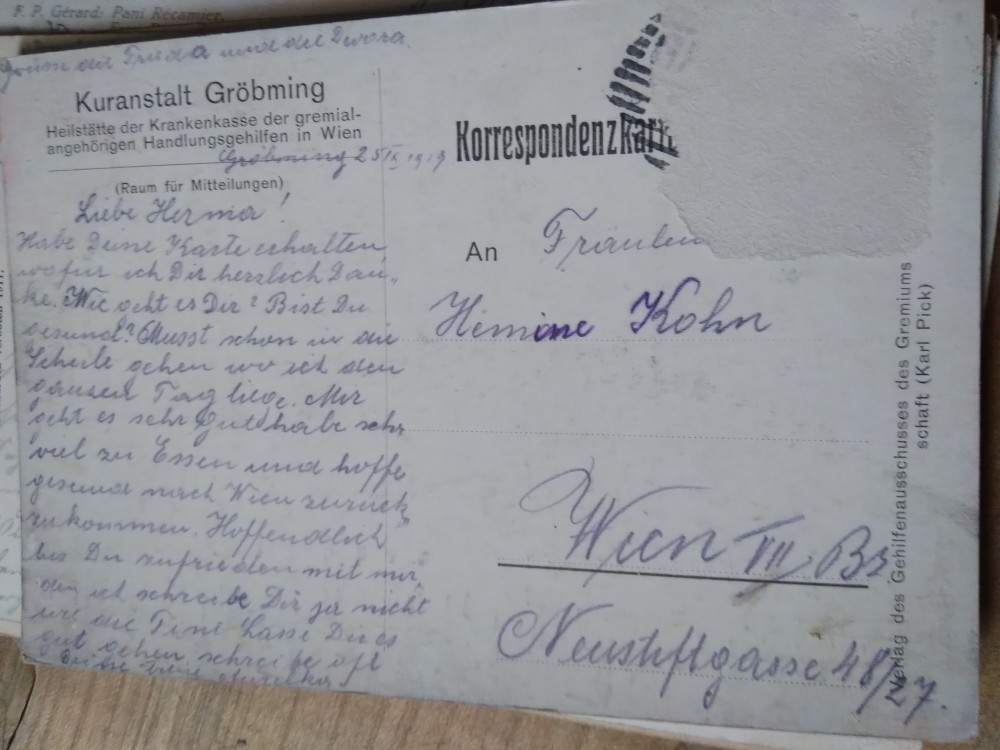 F. P. Gérard: Pani Récamier.
die Frieda und die Dvora.
Kuranstalt Gröbming
Heilstätte der Krankenkasse der gremial-
angehörigen Handlungsgehilfen in Wien
Gröbming 25 IX 1919
(Raum für Mitteilungen)
Liebe Hermia!
Habe Deine Karte erhalten
wofür ich Dir herzlich Dan-
ke. Wie geht es Dir? Bist Du
gesund? Musst schon in die
Schule gehen wo ich den
ganzen Tag liege. Mir
geht es sehr gut habe sehr
viel zu Essen und hoffe
gesund nach Wien zurück
zukommen. Hoffendlich
bis Du zufrieden mit mir,
den ich schreibe Dir ja nicht
wie die Tini Lasse Dir es
gut gehen, schreibe oft
Korrespondenzkarte
An Fräulein
Hermine Kohn
Wien VII Bz
Neustiftgasse 48/27.
Verlag des Gehilfenausschusses des Gremiums
schaft (Karl Pick)